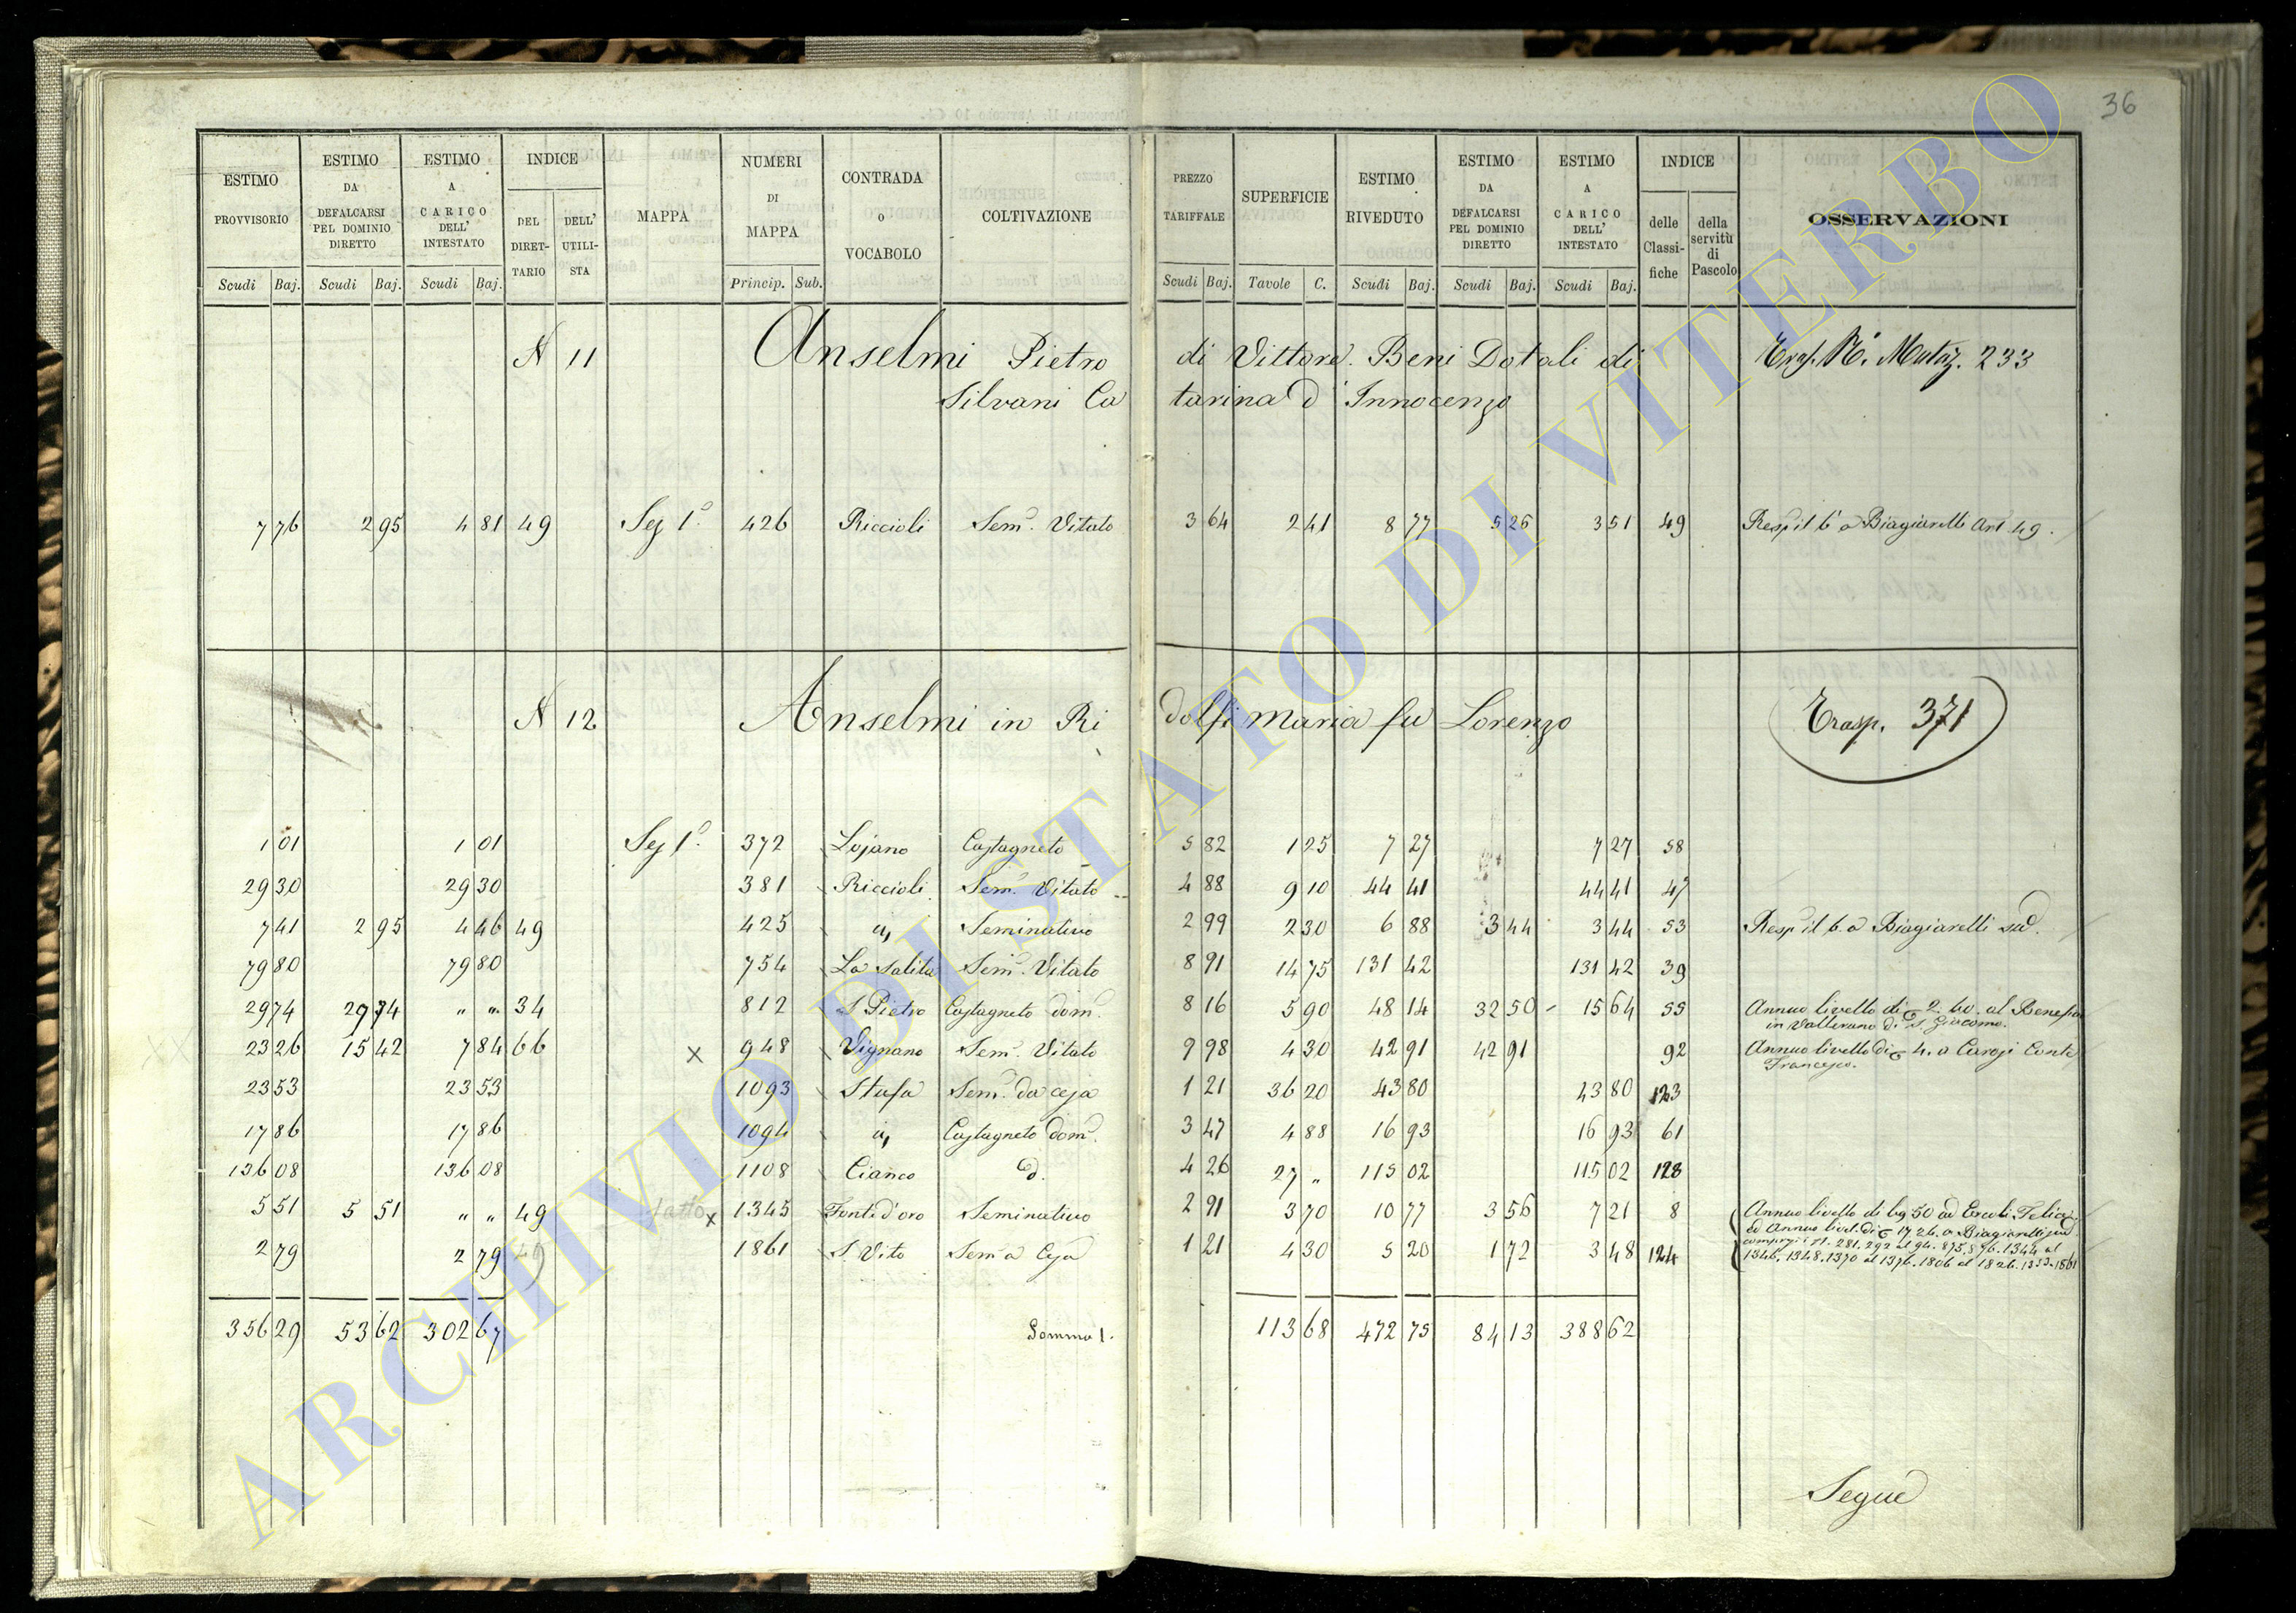 36
ESTIMO PROVVISORIO Scudi Baj.
ESTIMO DA DEFALCARSI PEL DOMINIO DIRETTO Scudi Baj.
ESTIMO A CARICO DELL' INTESTATO Scudi Baj.
INDICE DEL DIRETTARIO DELL' UTILISTA
MAPPA
NUMERI DI MAPPA Princip. Sub.
CONTRADA O VOCABOLO
COLTIVAZIONE
PREZZO TARIFFALE Scudi Baj.
SUPERFICIE Tavole C.
ESTIMO RIVEDUTO Scudi Baj.
ESTIMO DA DEFALCARSI PEL DOMINIO DIRETTO Scudi Baj.
ESTIMO A CARICO DELL' INTESTATO Scudi Baj.
INDICE delle Classifiche della servitù di Pascolo
OSSERVAZIONI
N 11 Anselmi Pietro di Vittore. Beni Dotali di
Silvani Catarina d' Innocenzo
Trasp. N. 233
7 76 2 95 4 81 49 Sez 1ª 426 Riccioli Semº Vitato 3 64 2 41 8 77 5 26 3 51 49 Resp il b a Biagiarelli Art 49.
N 12 Anselmi in Ridolfi Maria fu Lorenzo
Trasp. 371
1 01 1 01 Sez 1ª 372 Lojano Castagneto 5 82 1 25 7 27 7 27 58
29 30 29 30 381 Riccioli Semº Vitato 4 88 9 10 44 41 44 41 47
7 41 2 95 4 46 49 425 id Seminativo 2 99 2 30 6 88 3 44 3 44 53 Resp il b. a Biagiarelli sud.
79 80 79 80 754 La Salita Semº Vitato 8 91 14 75 131 42 131 42 39
29 74 29 74 " " 34 812 S Pietro Castagneto domº 8 16 5 90 48 14 32 50 15 64 55 Annuo livello di 2. 40. al Benefiz
in Vallerano di S. Giacomo.
23 26 15 42 7 84 66 x 948 Vignano Semº Vitato 9 98 4 30 42 91 42 91 92 Annuo livello di 4. a Carosi Conte
Francesco.
23 53 23 53 1093 Stufa Semº da ceja 1 21 36 20 43 80 43 80 123
17 86 17 86 1094 id Castagneto domº 3 47 4 88 16 93 16 93 61
136 08 136 08 1108 Cianco d. 4 26 27 " 115 02 115 02 128
5 51 5 51 " " 49 fatto x 1345 Fonte d'oro Seminativo 2 91 3 70 10 77 3 56 7 21 8 Annuo livello di bg 50 ad Ercoli Felice
ed Annuo livel. di 17 26. a Biagiarelli sud.
2 79 2 79 49 1861 S. Vito Semº a Ceja 1 21 4 30 5 20 1 72 3 48 124 281. 292 al 94. 875. 876. 1344 al
1346. 1348. 1370 al 1376. 1806 al 1826. 1861
356 29 53 62 302 67 Somma 1. 113 68 472 75 84 13 388 62
Segue
ARCHIVIO DI STATO DI VITERBO